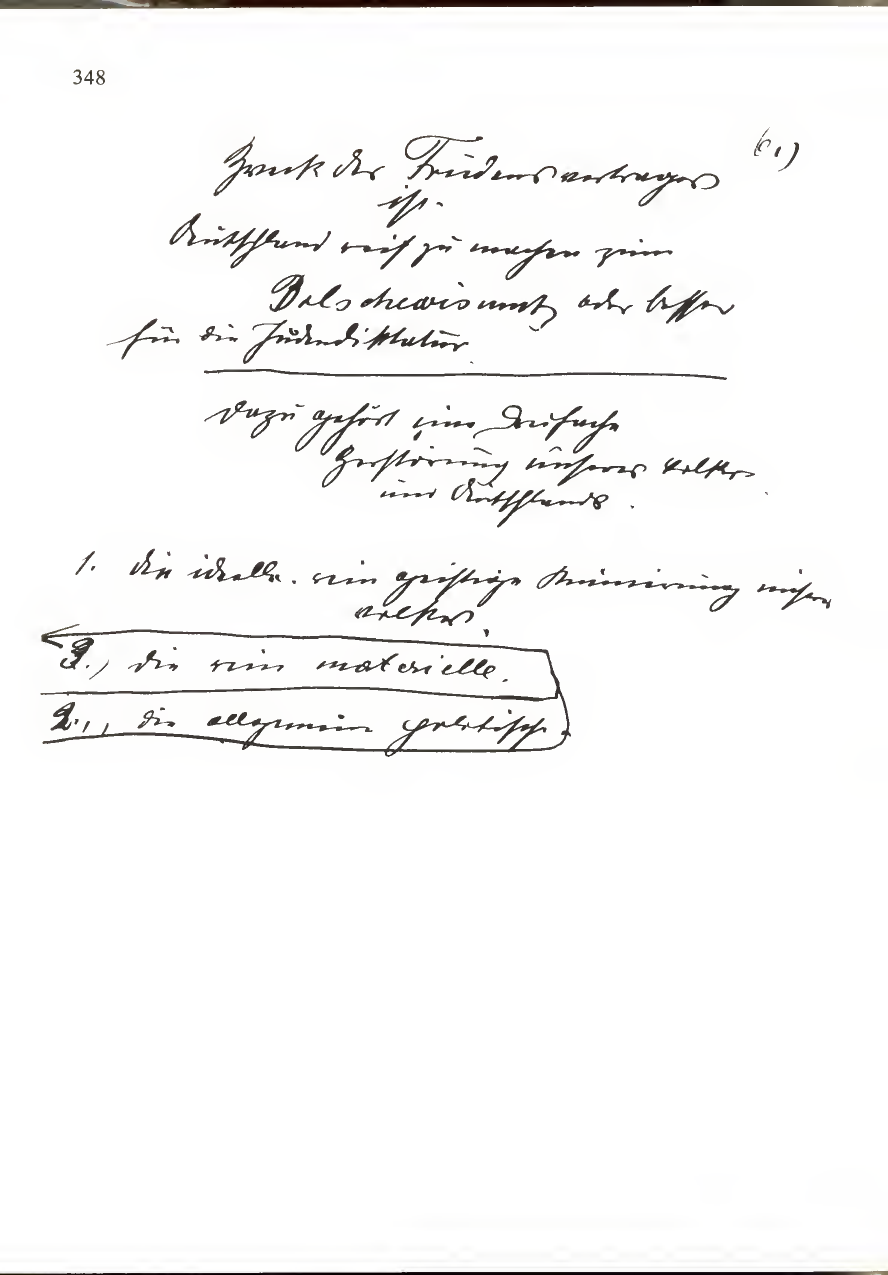 348
(6,)
Zweck des Friedensvertrages
ist
Deutschland reif zu machen zum
Bolschewismus oder besser
für die Judendiktatur
Dazu gehört eine Dreifache
Zerstörung unseres Volkes
und Deutschlands.
1. die ideelle. rein geistige Ruinierung unseres
Volkes.
3.) die rein materielle.
2., die allgemein politische.